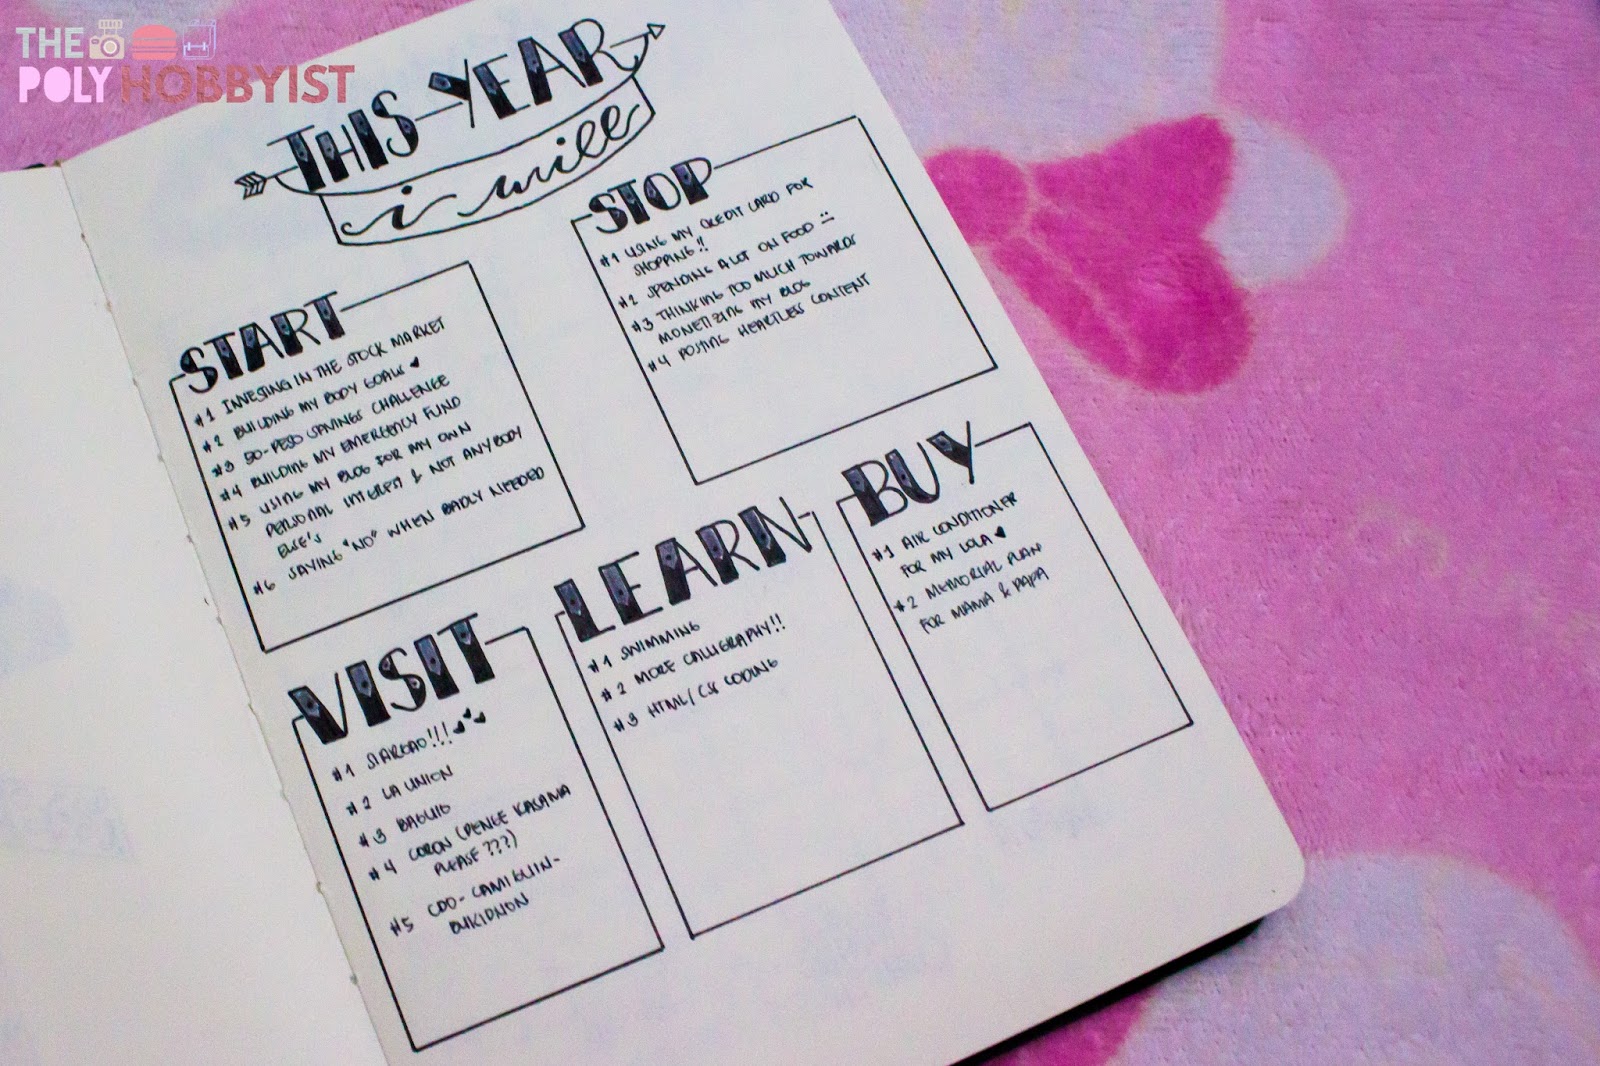 THE
POLY HOBBYIST
THIS YEAR
i will
START
#1 INVESTING IN THE STOCK MARKET
#2 BUILDING MY BODY GOALS
#3 50-PESO SAVINGS CHALLENGE
#4 BUILDING MY EMERGENCY FUND
#5 USING MY BLOG FOR MY OWN
PERSONAL INTEREST & NOT ANYBODY
ELSE'S
#6 SAYING "NO" WHEN BADLY NEEDED
STOP
#1 USING MY CREDIT CARD FOR
SHOPPING!!
#2 SPENDING A LOT ON FOOD
#3 THINKING TOO MUCH TOWARDS
MONETIZING MY BLOG
#4 POSTING HEARTLESS CONTENT
VISIT
#1 SIARGAO!!!
#2 LA UNION
#3 BAGUIO
#4 CORON (PENGE KASAMA
PLEASE???)
#5 CDO-CAMIGUIN-
BUKIDNON
LEARN
#1 SWIMMING
#2 MORE CALLIGRAPHY!!
#3 HTML/CSS CODING
BUY
#1 AIR CONDITIONER
FOR MY LOLA
#2 MEMORIAL PLAN
FOR MAMA & PAPA